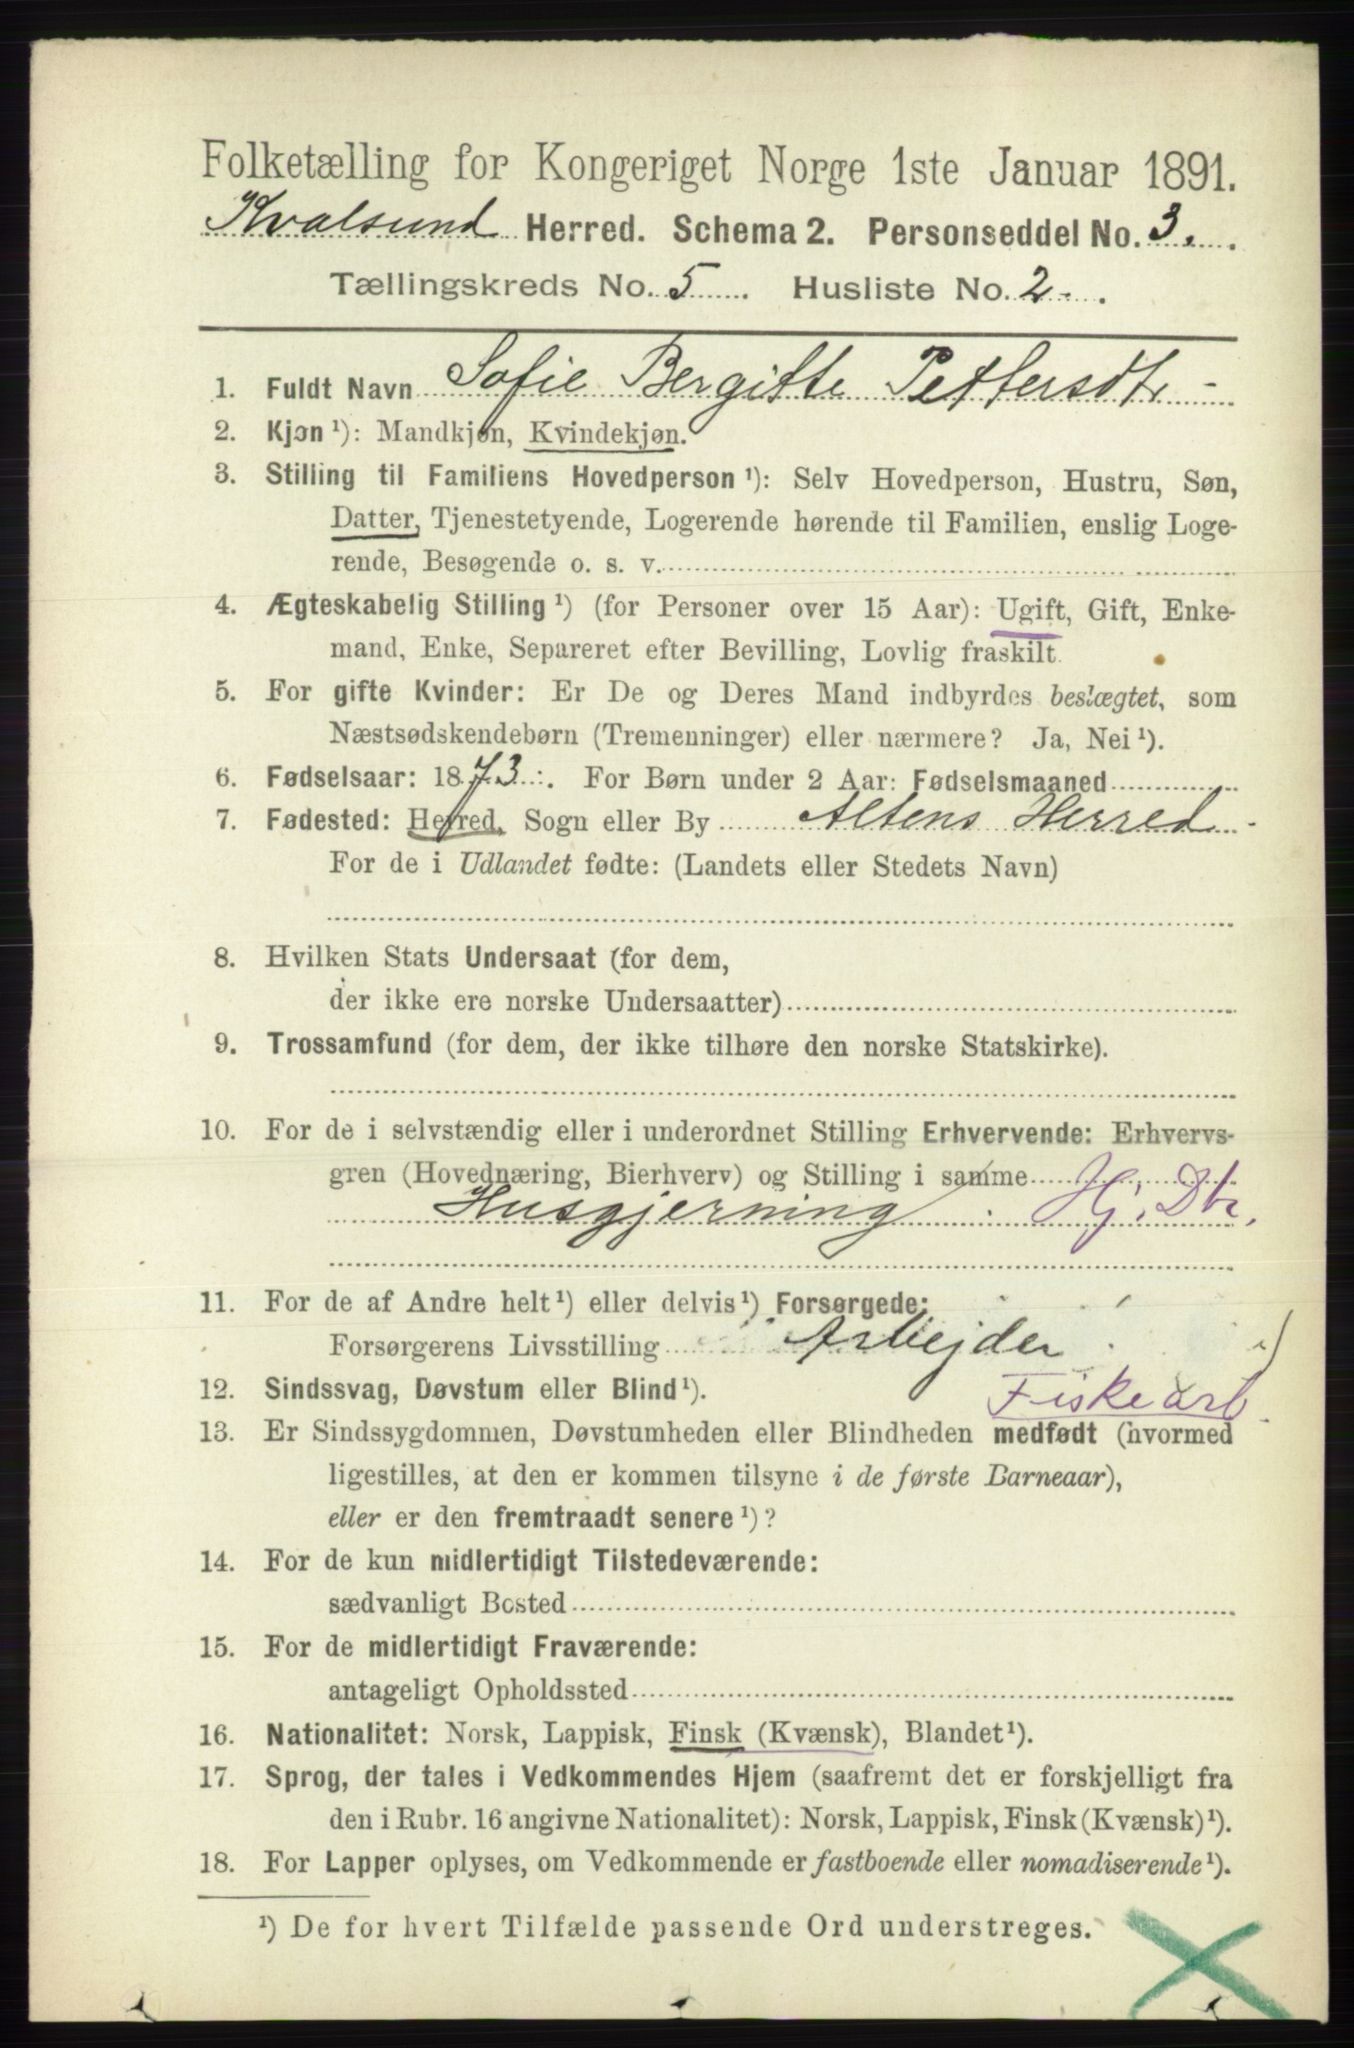 Folketælling for Kongeriget Norge 1ste Januar 1891.
Kvalsund Herred. Schema 2. Personseddel No. 3.
Tællingskreds No. 5. Husliste No. 2.
1. Fuldt Navn Sofie Bergitte Pettersdtr
2. Kjøn ¹): Mandkjøn, Kvindekjøn.
3. Stilling til Familiens Hovedperson ¹): Selv Hovedperson, Hustru, Søn,
Datter, Tjenestetyende, Logerende hørende til Familien, enslig Loge-
rende, Besøgende o. s. v.
4. Ægteskabelig Stilling ¹) (for Personer over 15 Aar): Ugift, Gift, Enke-
mand, Enke, Separeret efter Bevilling, Lovlig fraskilt.
5. For gifte Kvinder: Er De og Deres Mand indbyrdes beslægtet, som
Næstsødskendebørn (Tremenninger) eller nærmere? Ja, Nei ¹).
6. Fødselsaar: 1873. For Børn under 2 Aar: Fødselsmaaned
7. Fødested: Herred, Sogn eller By Altens Herred
For de i Udlandet fødte: (Landets eller Stedets Navn)
8. Hvilken Stats Undersaat (for dem,
der ikke ere norske Undersaatter)
9. Trossamfund (for dem, der ikke tilhøre den norske Statskirke).
10. For de i selvstændig eller i underordnet Stilling Erhvervende: Erhvervs-
gren (Hovednæring, Bierhverv) og Stilling i samme
Husgjerning. Hj. Dtr.
11. For de af Andre helt ¹) eller delvis ¹) Forsørgede:
Forsørgerens Livsstilling Arbejder
12. Sindssvag, Døvstum eller Blind ¹). Fiskearb.
13. Er Sindssygdommen, Døvstumheden eller Blindheden medfødt (hvormed
ligestilles, at den er kommen tilsyne i de første Barneaar),
eller er den fremtraadt senere ¹)?
14. For de kun midlertidigt Tilstedeværende:
sædvanligt Bosted
15. For de midlertidigt Fraværende:
antageligt Opholdssted
16. Nationalitet: Norsk, Lappisk, Finsk (Kvænsk), Blandet ¹).
17. Sprog, der tales i Vedkommendes Hjem (saafremt det er forskjelligt fra
den i Rubr. 16 angivne Nationalitet): Norsk, Lappisk, Finsk (Kvænsk) ¹).
18. For Lapper oplyses, om Vedkommende er fastboende eller nomadiserende ¹).
¹) De for hvert Tilfælde passende Ord understreges.